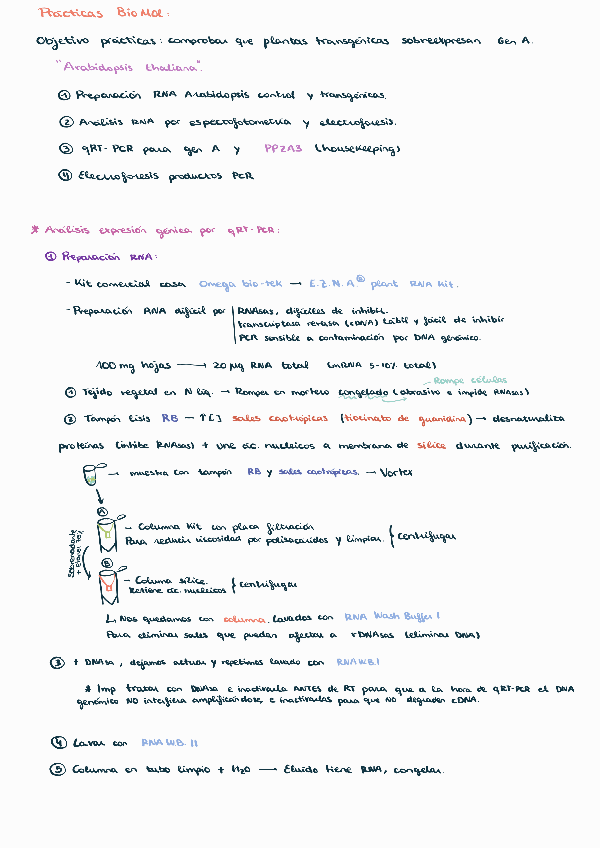 Prácticas BioMol:
Objetivo prácticas: comprobar que plantas transgénicas sobreexpresan Gen A.
"Arabidopsis thaliana".
① Preparación RNA Arabidopsis control y transgénicas.
② Análisis RNA por espectrofotometría y electroforesis.
③ qRT-PCR para gen A y PP2A3 (housekeeping)
④ Electroforesis productos PCR
* Análisis expresión génica por qRT-PCR:
① Preparación RNA:
- Kit comercial casa Omega bio-tek → E.Z.N.A® plant RNA Kit.
- Preparación ANA difícil por RNAsas, difíciles de inhibir.
transcriptasa reversa (cDNA) lábil y fácil de inhibir
PCR sensible a contaminación por DNA genómico.
100 mg hojas → 20 µg RNA total (mRNA 5-10% total)
Rompe células
① Tejido vegetal en N líq. → Romper en mortero congelado (abrasivo e impide RNAsas)
② Tampón lisis RB - ↑[ ] sales caotrópicas (tiocinato de guanidina) → desnaturaliza
proteínas (inhibe RNAsas) + une ác. nucleicos a membrana de sílice durante purificación.
→ muestra con tampón RB y sales caotrópicas. → Vortex
A
- Columna Kit con placa filtración
Para reducir viscosidad por polisacáridos y limpiar. } centrifugar
Sobrenadante + Etanol 70%
B
- Columna sílice.
Retiene ác. nucleicos } centrifugar
↳ Nos quedamos con columna. Lavados con RNA Wash Buffer I
Para eliminar sales que puedan afectar a rDNAsas (eliminar DNA)
③ + DNAsa, dejamos actuar y repetimos lavado con RNA W.B. I
* Imp tratar con DNAsa e inactivarla ANTES de RT para que a la hora de qRT-PCR el DNA
genómico NO interfiera amplificándose, e inactivarlas para que NO degraden cDNA.
④ Lavar con RNA W.B. II
⑤ Columna en tubo limpio + H₂O → Eluido tiene RNA, congelar.